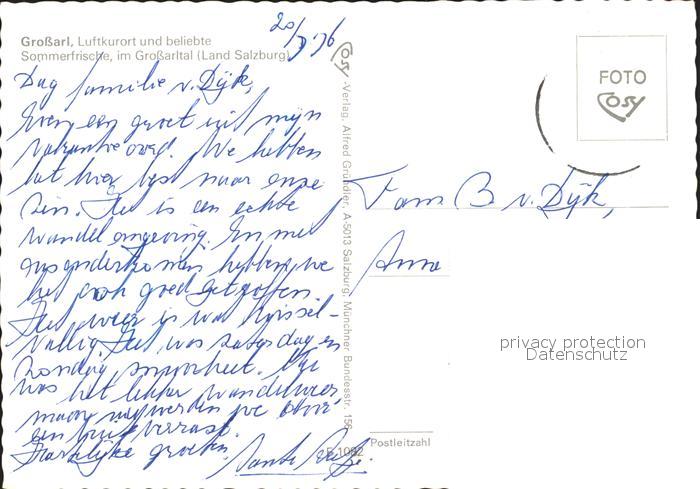 20/7 '76
Großarl, Luftkurort und beliebte
Sommerfrische, im Großarltal (Land Salzburg)
Dag familie v. Dijk,
Even een groet uit mijn
vakantieoord. We hebben
het hier best naar onze
zin. Het is een echte
wandelomgeving. En met
ons onderkomen hebben we
het ook goed getroffen.
Het weer is wat wissel-
vallig. Het was zaterdag en
zondag
was het lekker wandelweer
maar nu werden we door
een bui verrast.
Hartelijke groeten.
Tante
Cosy-Verlag, Alfred Gründler, A-5013 Salzburg, Münchner Bundesstr. 156
FOTO
Cosy
Fam B v. Dijk,
Anna
privacy protection
Datenschutz
Postleitzahl